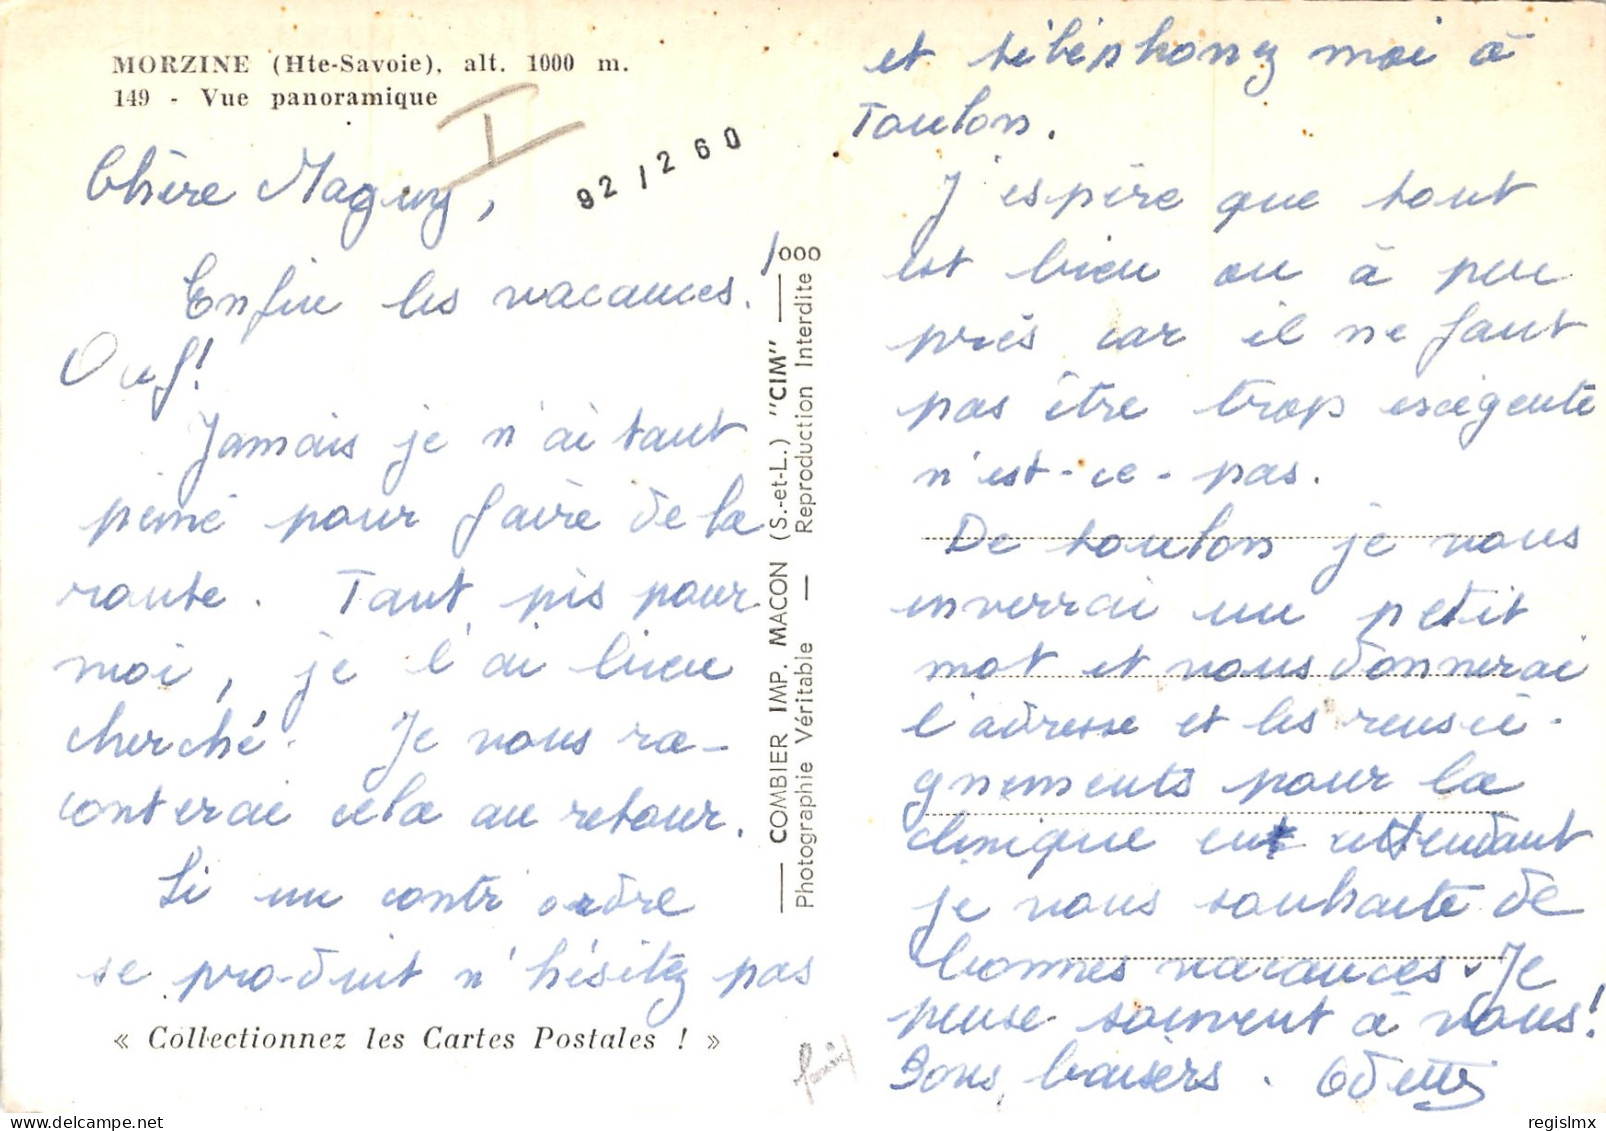 MORZINE (Hte-Savoie), alt. 1000 m.
149 - Vue panoramique
92 / 260
Chère Maguy,
Enfin les vacances.
Ouf!
Jamais je n'ai tant
peiné pour faire de la
route. Tant pis pour
moi, je l'ai bien
cherché. Je vous ra-
conterai cela au retour.
Si un contr'ordre
se produit n'hésitez pas
« Collectionnez les Cartes Postales ! »
1000
COMBIER IMP. MACON (S.-et-L.) "CIM"
Photographie Véritable — Reproduction Interdite
et téléphonez moi à
Toulon.
J'espère que tout
est bien ou à peu
près car il ne faut
pas être trop exigente
n'est-ce-pas.
De toulon je vous
enverrai un petit
mot et vous donnerai
l'adresse et les rensei-
gnements pour la
clinique en attendant
je vous souhaite de
bonnes vacances. Je
pense souvent à vous!
Bons baisers. Odette
regislmx
delcampe.net